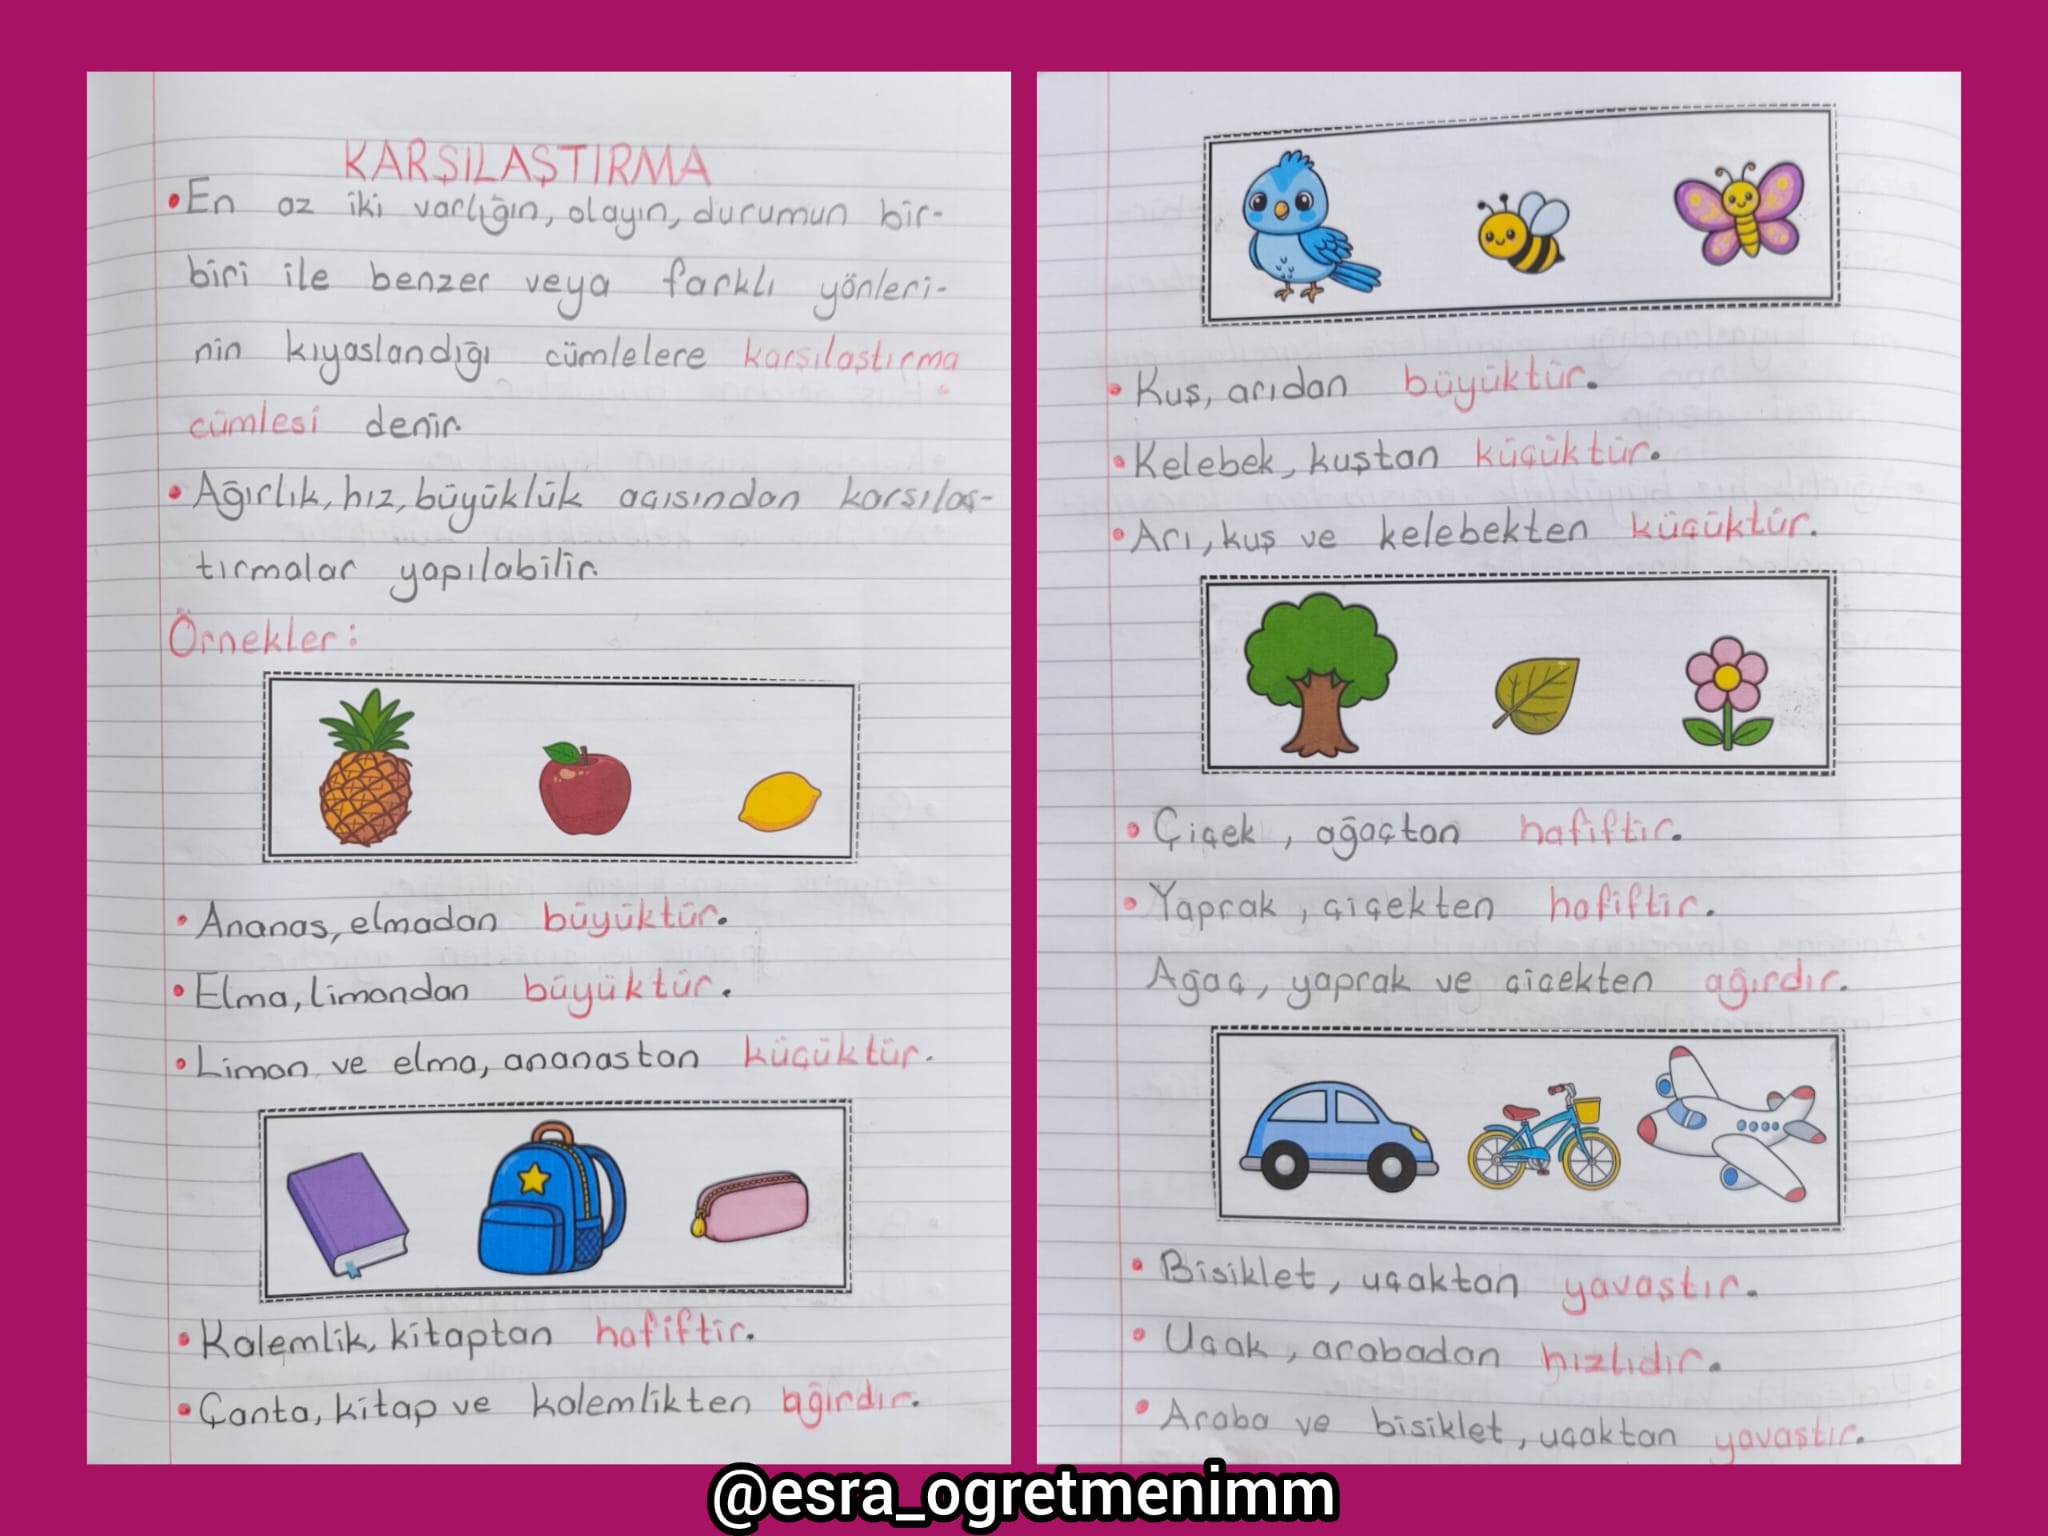 KARŞILAŞTIRMA
• En az iki varlığın, olayın, durumun bir-
biri ile benzer veya farklı yönleri-
nin kıyaslandığı cümlelere karşılaştırma
cümlesi denir.
• Ağırlık, hız, büyüklük açısından karşılaş-
tırmalar yapılabilir.
Örnekler:
• Ananas, elmadan büyüktür.
• Elma, limondan büyüktür.
• Limon ve elma, ananastan küçüktür.
• Kalemlik, kitaptan hafiftir.
• Çanta, kitap ve kalemlikten ağırdır.
• Kuş, arıdan büyüktür.
• Kelebek, kuştan küçüktür.
• Arı, kuş ve kelebekten küçüktür.
• Çiçek, ağaçtan hafiftir.
• Yaprak, çiçekten hafiftir.
Ağaç, yaprak ve çiçekten ağırdır.
• Bisiklet, uçaktan yavaştır.
• Uçak, arabadan hızlıdır.
• Araba ve bisiklet, uçaktan yavaştır.
@esra_ogretmenimm